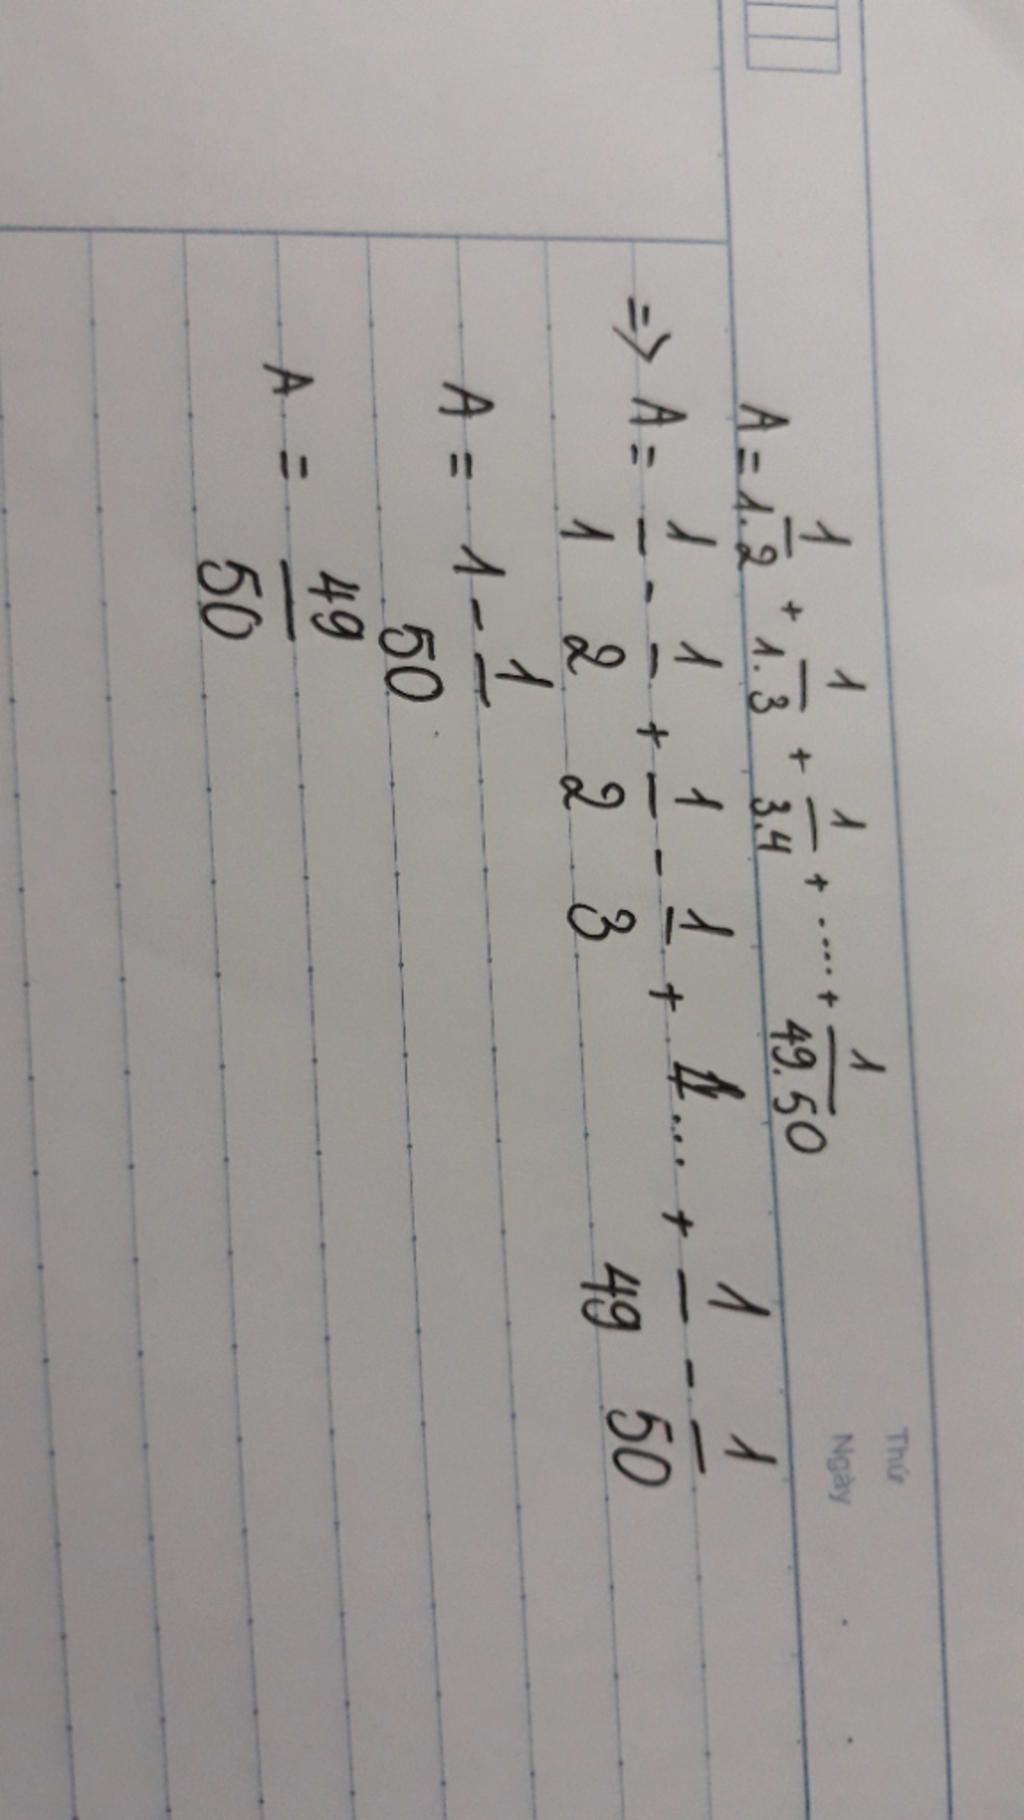 Thứ
Ngày
A = 1/1.2 + 1/1.3 + 1/3.4 + ..... + 1/49.50
=> A = 1/1 - 1/2 + 1/2 - 1/3 + ... + 1/49 - 1/50
A = 1 - 1/50
A = 49/50